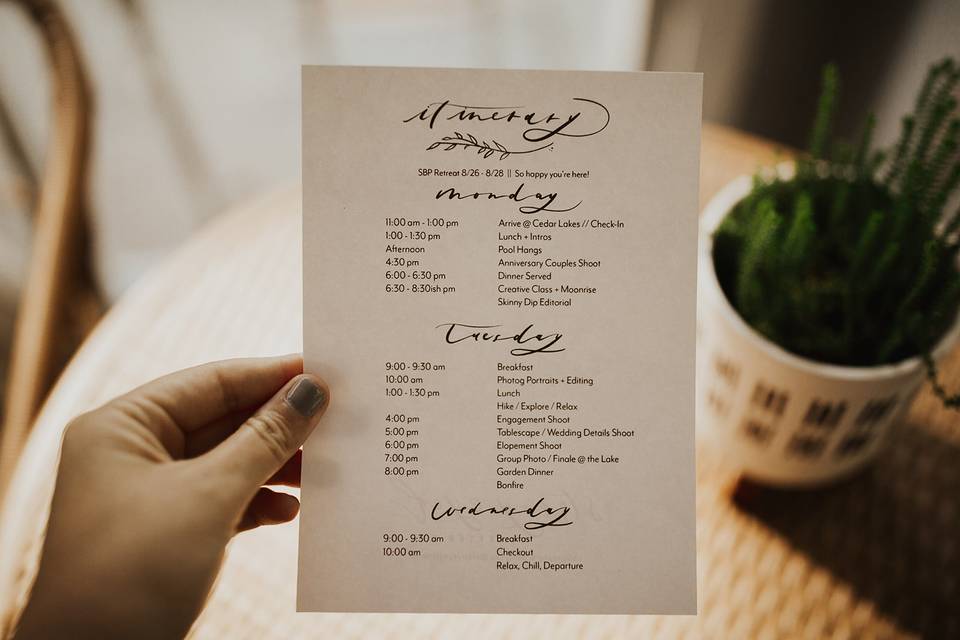 itinerary
SBP Retreat 8/26 - 8/28 || So happy you're here!
monday
11:00 am - 1:00 pm Arrive @ Cedar Lakes // Check-In
1:00 - 1:30 pm Lunch + Intros
Afternoon Pool Hangs
4:30 pm Anniversary Couples Shoot
6:00 - 6:30 pm Dinner Served
6:30 - 8:30ish pm Creative Class + Moonrise
Skinny Dip Editorial
Tuesday
9:00 - 9:30 am Breakfast
10:00 am Photog Portraits + Editing
1:00 - 1:30 pm Lunch
Hike / Explore / Relax
4:00 pm Engagement Shoot
5:00 pm Tablescape / Wedding Details Shoot
6:00 pm Elopement Shoot
7:00 pm Group Photo / Finale @ the Lake
8:00 pm Garden Dinner
Bonfire
wednesday
9:00 - 9:30 am Breakfast
10:00 am Checkout
Relax, Chill, Departure